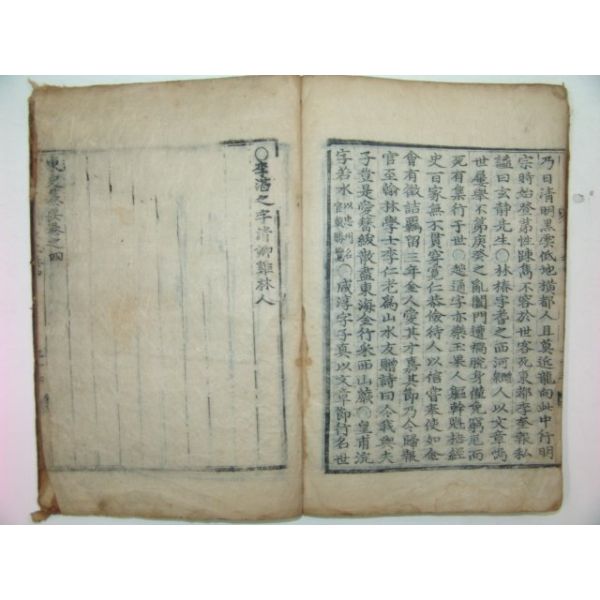 乃曰淸明黑雲低地橫都人且莫近龍向此中行明
宗時始登第性踈雋不容於世客死東都李奎報私
諡曰玄靜先生○林椿字耆之西河人以文章鳴
世屢舉不第庚癸之亂闔門遭禍脫身僅免窮夭而
死有集行于世○趙通字亦樂玉果人軀幹魁梧經
史百家無不貫穿寬仁恭儉待人以信嘗奉使如金
會有徵詰羈留三年金人愛其才嘉其節乃令歸報
官至翰林學士李仁老爲山水友贈詩曰今我與夫
子豈是愛簪紱散盡東海金行采西山蕨○皇甫沆
字若水以忠州名官觀勝覽○咸淳字子眞以文章節行名世
○李湛之字淸卿雞林人
東史纂要卷之四